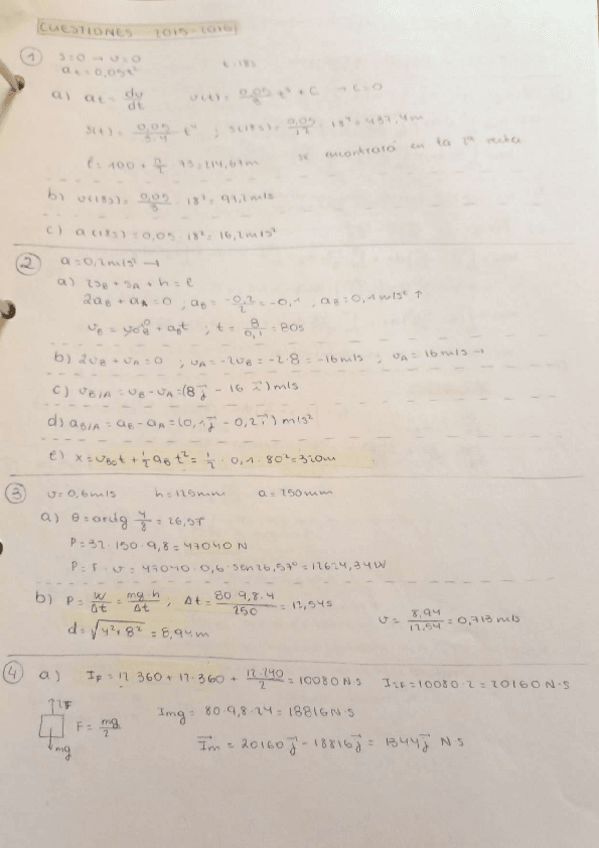 CUESTIONES 2015-2016
① s=0 → v=0 t=18s
at=0,05t²
a) at = dv/dt v(t) = 0,05/3 t³ + C → C=0
s(t) = 0,05/3·4 t⁴ ; s(18s) = 0,05/12 18⁴ = 437,4m
l = 100 + π/2 · 73 = 214,67m se encontrará en la 2ª recta
b) v(18s) = 0,05/3 · 18³ = 97,2 m/s
c) a(18s) = 0,05 · 18² = 16,2 m/s²
② a=0,2m/s² →
a) 2sB + sA + h = l
2aB + aA = 0 ; aB = -0,2/2 = -0,1 , aB = 0,1 m/s² ↑
vB = v0B + aBt ; t = 8/0,1 = 80s
b) 2vB + vA = 0 ; vA = -2vB = -2·8 = -16m/s ; vA = 16m/s →
c) vB/A = vB - vA = (8j - 16 i) m/s
d) aB/A = aB - aA = (0,1j - 0,2i) m/s²
e) x = vB0 t + 1/2 aB t² = 1/2 · 0,1 · 80² = 320m
③ v=0,6m/s h=125mm a=250mm
a) θ = arctg 4/8 = 26,57
P = 32·150·9,8 = 47040 N
P = F·v = 47040·0,6·sen26,57° = 12624,34W
b) P = W/Δt = mg·h/Δt ; Δt = 80·9,8·4/250 = 12,54s
d = √4²+8² = 8,94m v = 8,94/12,54 = 0,713 m/s
④ a) IF = 12·360 + 12·360 + 12·240/2 = 10080 N·s I2F = 10080·2 = 20160 N·s
↑2F
F = mg/2 Img = 80·9,8·24 = 18816 N·s
↓mg
Im = 20160j - 18816j = 1344j N·s